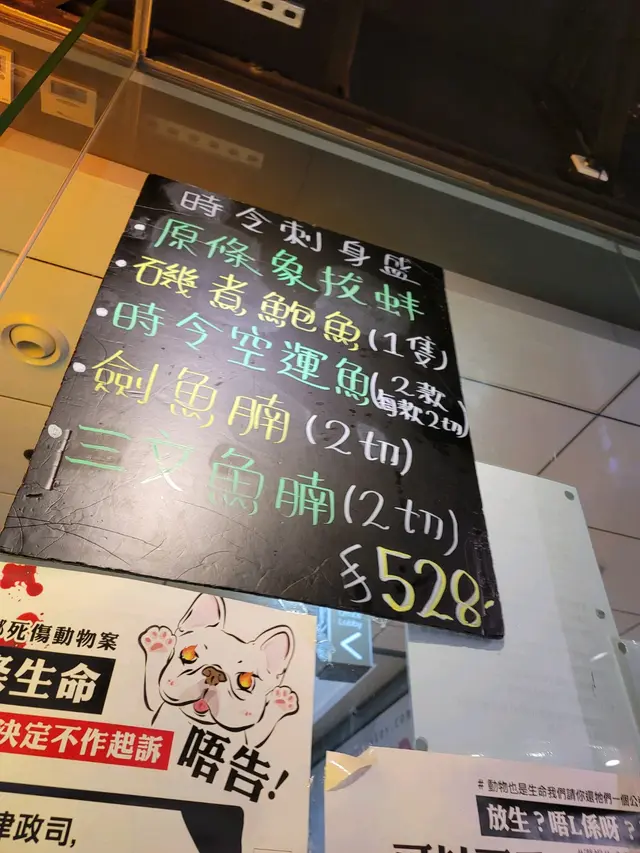 時令刺身盛
• 原條象拔蚌
• 磯煮鮑魚(1隻)
• 時令空運魚(2款 每款2切)
• 劍魚腩(2切)
• 三文魚腩(2切)
$528
死傷動物案
生命
決定不作起訴
唔告!
律政司,
# 動物也是生命我們請你還牠們一個公
放生?唔L係呀?